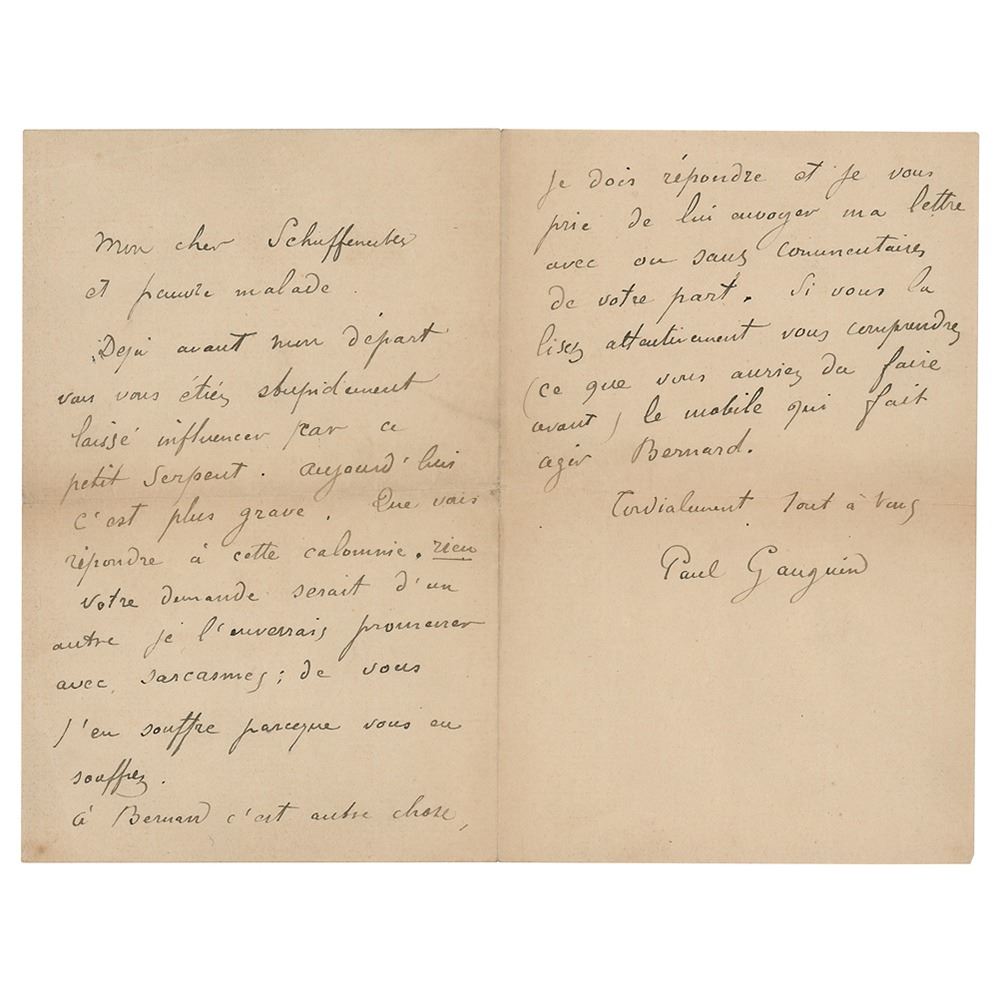 Mon cher Schuffenecker
et pauvre malade.
Dejà avant mon départ
vous vous étiez stupidement
laissé influencer par ce
petit Serpent. Aujourd'hui
c'est plus grave. Que vais
répondre à cette calomnie. rien
Votre demande serait d'un
autre je l'enverrais promener
avec sarcasmes; de vous
j'en souffre parceque vous en
souffrez.
à Bernard c'est autre chose,
je dois répondre et je vous
prie de lui envoyer ma lettre
avec ou sans commentaires
de votre part. Si vous la
lisez attentivement vous comprendrez
(ce que vous auriez du faire
avant) le mobile qui fait
agir Bernard.
Cordialement tout à vous
Paul Gauguin